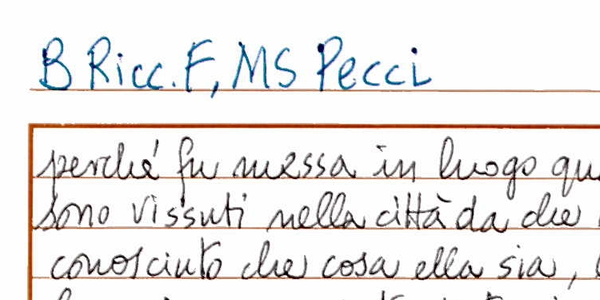 B Ricc. F, MS Pecci
perché fu messa in luogo qu
sono vissuti nella città da che
conosciuto che cosa ella sia,